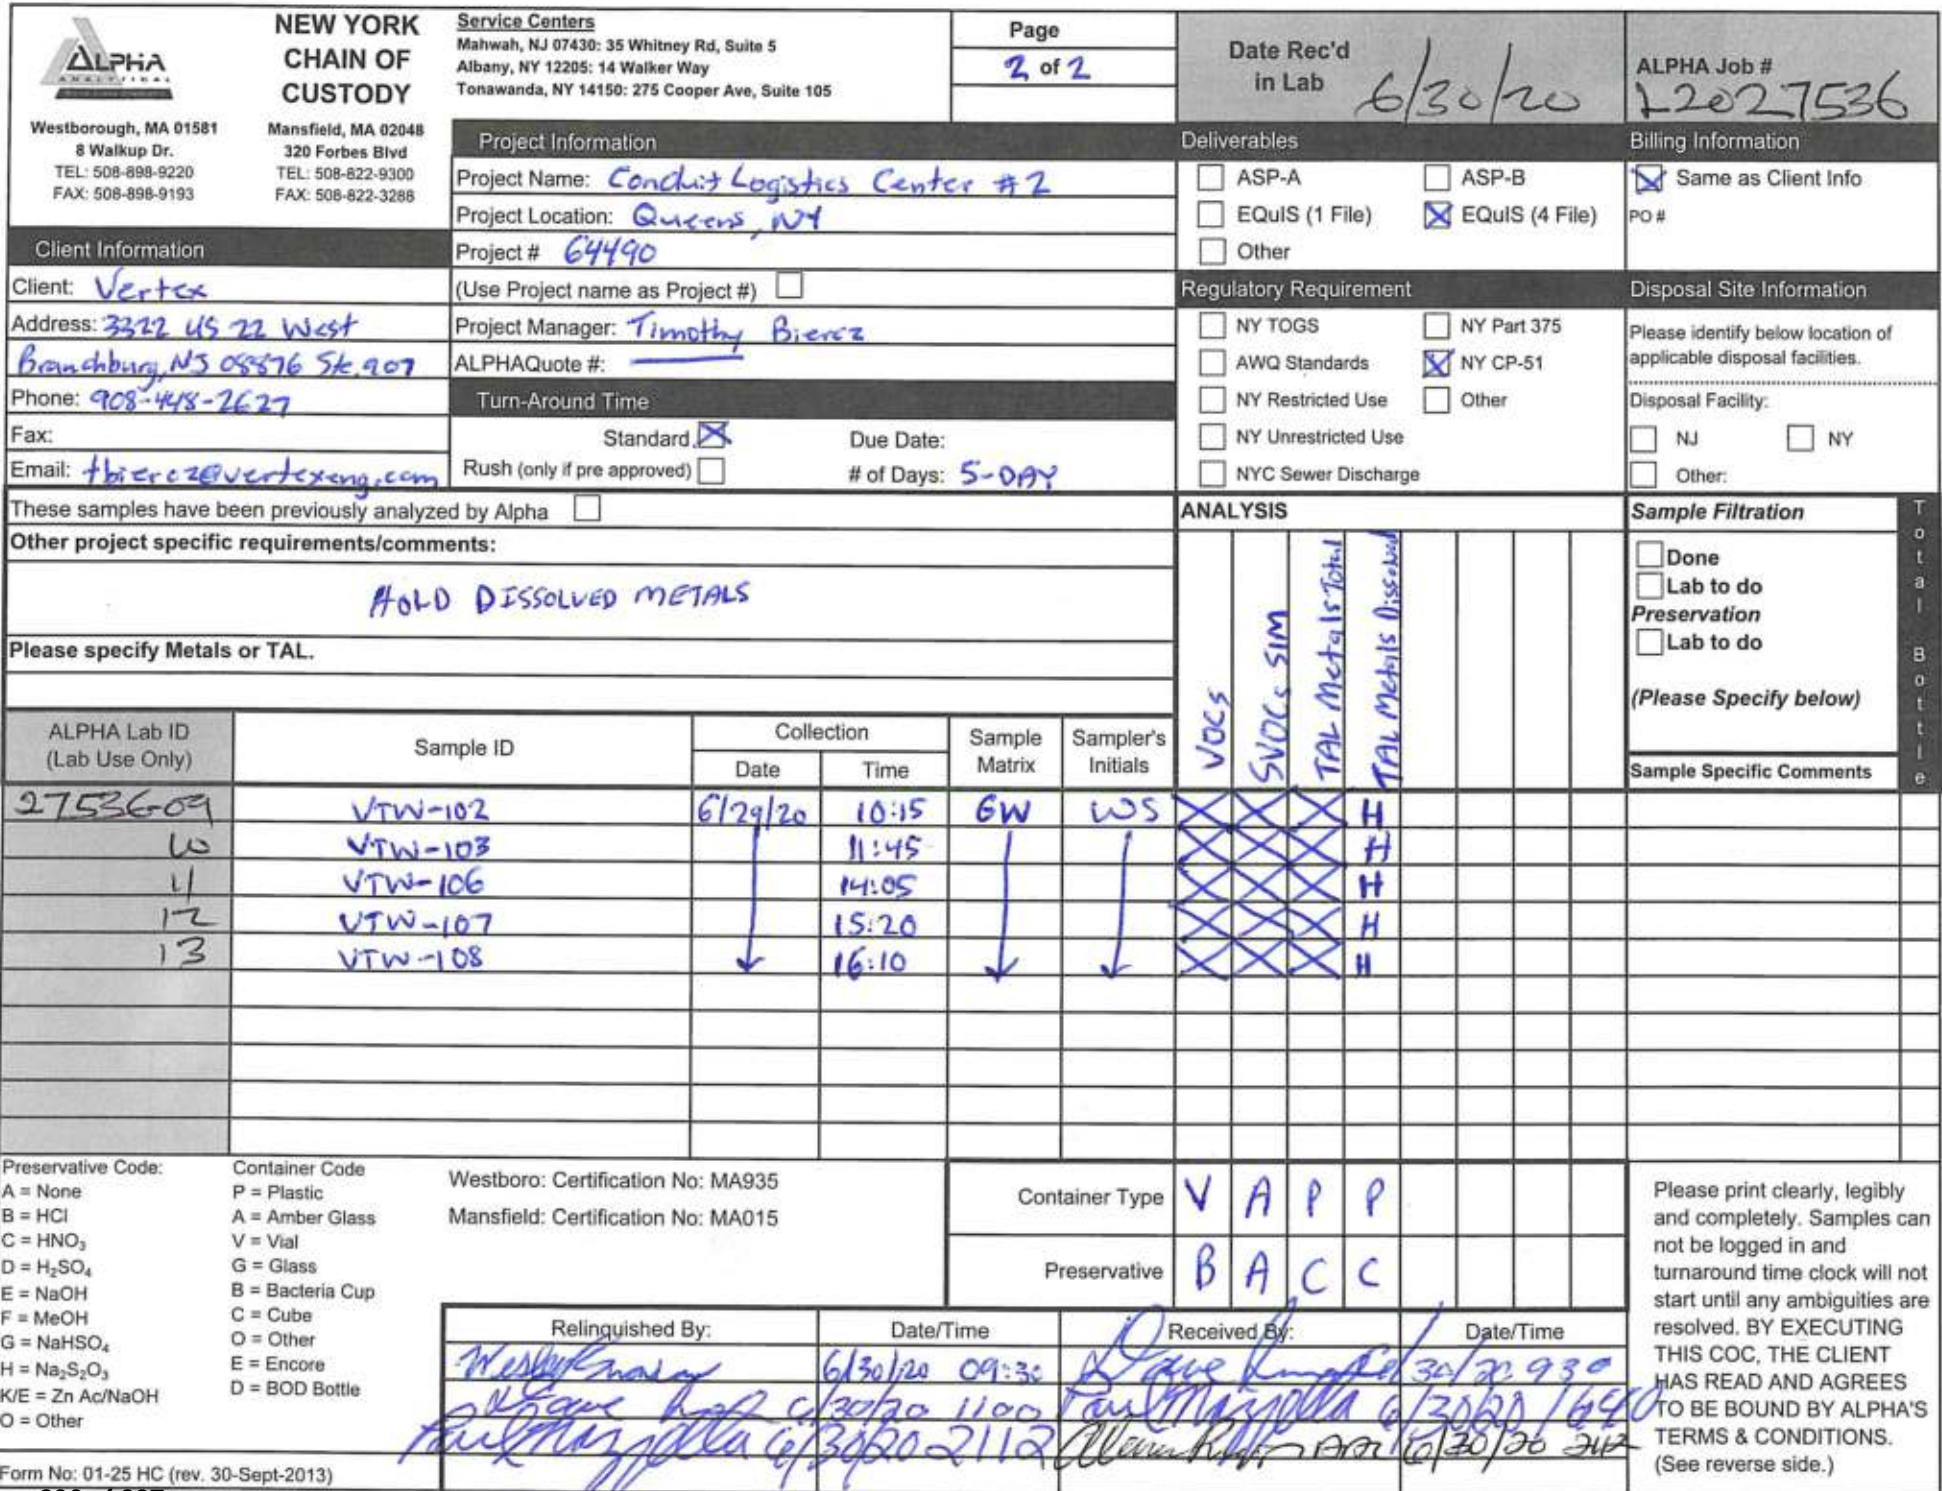 ALPHA
ANALYTICAL
NEW YORK
CHAIN OF
CUSTODY
Westborough, MA 01581
8 Walkup Dr.
TEL: 508-898-9220
FAX: 508-898-9193
Mansfield, MA 02048
320 Forbes Blvd
TEL: 508-822-9300
FAX: 508-822-3288
Service Centers
Mahwah, NJ 07430: 35 Whitney Rd, Suite 5
Albany, NY 12205: 14 Walker Way
Tonawanda, NY 14150: 275 Cooper Ave, Suite 105
Page
2 of 2
Date Rec'd
in Lab
6/30/20
ALPHA Job #
L2027536
Project Information
Project Name: Conduit Logistics Center #2
Project Location: Queens, NY
Project # 64490
(Use Project name as Project #)
Project Manager: Timothy Biercz
ALPHAQuote #:
Client Information
Client: Vertex
Address: 3322 US 22 West
Branchburg, NJ 08876 Ste. 907
Phone: 908-448-2627
Fax:
Email: tbiercz@vertexeng.com
Turn-Around Time
Standard
Due Date:
Rush (only if pre approved)
# of Days: 5-DAY
Deliverables
ASP-A
ASP-B
EQuIS (1 File)
EQuIS (4 File)
Other
Billing Information
Same as Client Info
PO #
Regulatory Requirement
NY TOGS
NY Part 375
AWQ Standards
NY CP-51
NY Restricted Use
Other
NY Unrestricted Use
NYC Sewer Discharge
Disposal Site Information
Please identify below location of
applicable disposal facilities.
Disposal Facility:
NJ
NY
Other:
These samples have been previously analyzed by Alpha
Other project specific requirements/comments:
HOLD DISSOLVED METALS
Please specify Metals or TAL.
ANALYSIS
VOCs
SVOCs SIM
TAL Metals Total
TAL Metals Dissolved
Sample Filtration
Done
Lab to do
Preservation
Lab to do
(Please Specify below)
Sample Specific Comments
Total Bottle
ALPHA Lab ID
(Lab Use Only)
Sample ID
Collection
Date
Time
Sample
Matrix
Sampler's
Initials
27536-09 VTW-102 6/29/20 10:15 GW WS H
10 VTW-103 11:45 H
11 VTW-106 14:05 H
12 VTW-107 15:20 H
13 VTW-108 16:10 H
Preservative Code:
A = None
B = HCl
C = HNO3
D = H2SO4
E = NaOH
F = MeOH
G = NaHSO4
H = Na2S2O3
K/E = Zn Ac/NaOH
O = Other
Container Code
P = Plastic
A = Amber Glass
V = Vial
G = Glass
B = Bacteria Cup
C = Cube
O = Other
E = Encore
D = BOD Bottle
Westboro: Certification No: MA935
Mansfield: Certification No: MA015
Container Type V A P P
Preservative B A C C
Relinquished By:
Date/Time
Received By:
Date/Time
6/30/20 09:30 6/30/20 930
6/30/20 1100 Paul Mazzolla 6/30/20 1640
Paul Mazzolla 6/30/20 2112 6/30/20
Please print clearly, legibly
and completely. Samples can
not be logged in and
turnaround time clock will not
start until any ambiguities are
resolved. BY EXECUTING
THIS COC, THE CLIENT
HAS READ AND AGREES
TO BE BOUND BY ALPHA'S
TERMS & CONDITIONS.
(See reverse side.)
Form No: 01-25 HC (rev. 30-Sept-2013)